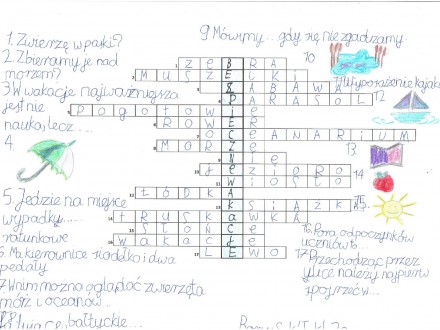 1. Zwierzę w paski?
2. Zbieramy je nad
morzem?
3. W wakacje najważniejsza
jest nie
nauka, lecz....
4.
5. Jedzie na miejsce
wypadku.....
ratunkowe
6. Ma kierownicę siodełko i dwa
pedały
7. W nim można oglądać zwierzęta
mórz i oceanów...
bałtyckie...
9 Mówimy... gdy się nie zgadzamy.
10
11. Wyposażenie kajaka
12
13
14
15.
16. Pora odpoczynków
uczniów to...
17. Przechodząc przez
ulicę należy najpierw
spojrzeć w...
1 ZEBRA
2 MUSZELKI
3 ZABAWA
4 PARASOL
5 POGOTOWIE
6 ROWER
7 OCEANARIUM
8 MORZE
9 NIE
10 JEZIORO
11 WIOSŁO
12 ŁÓDKA
13 KSIĄŻKA
14 TRUSKAWKA
15 SŁOŃCE
16 WAKACJE
17 LEWO